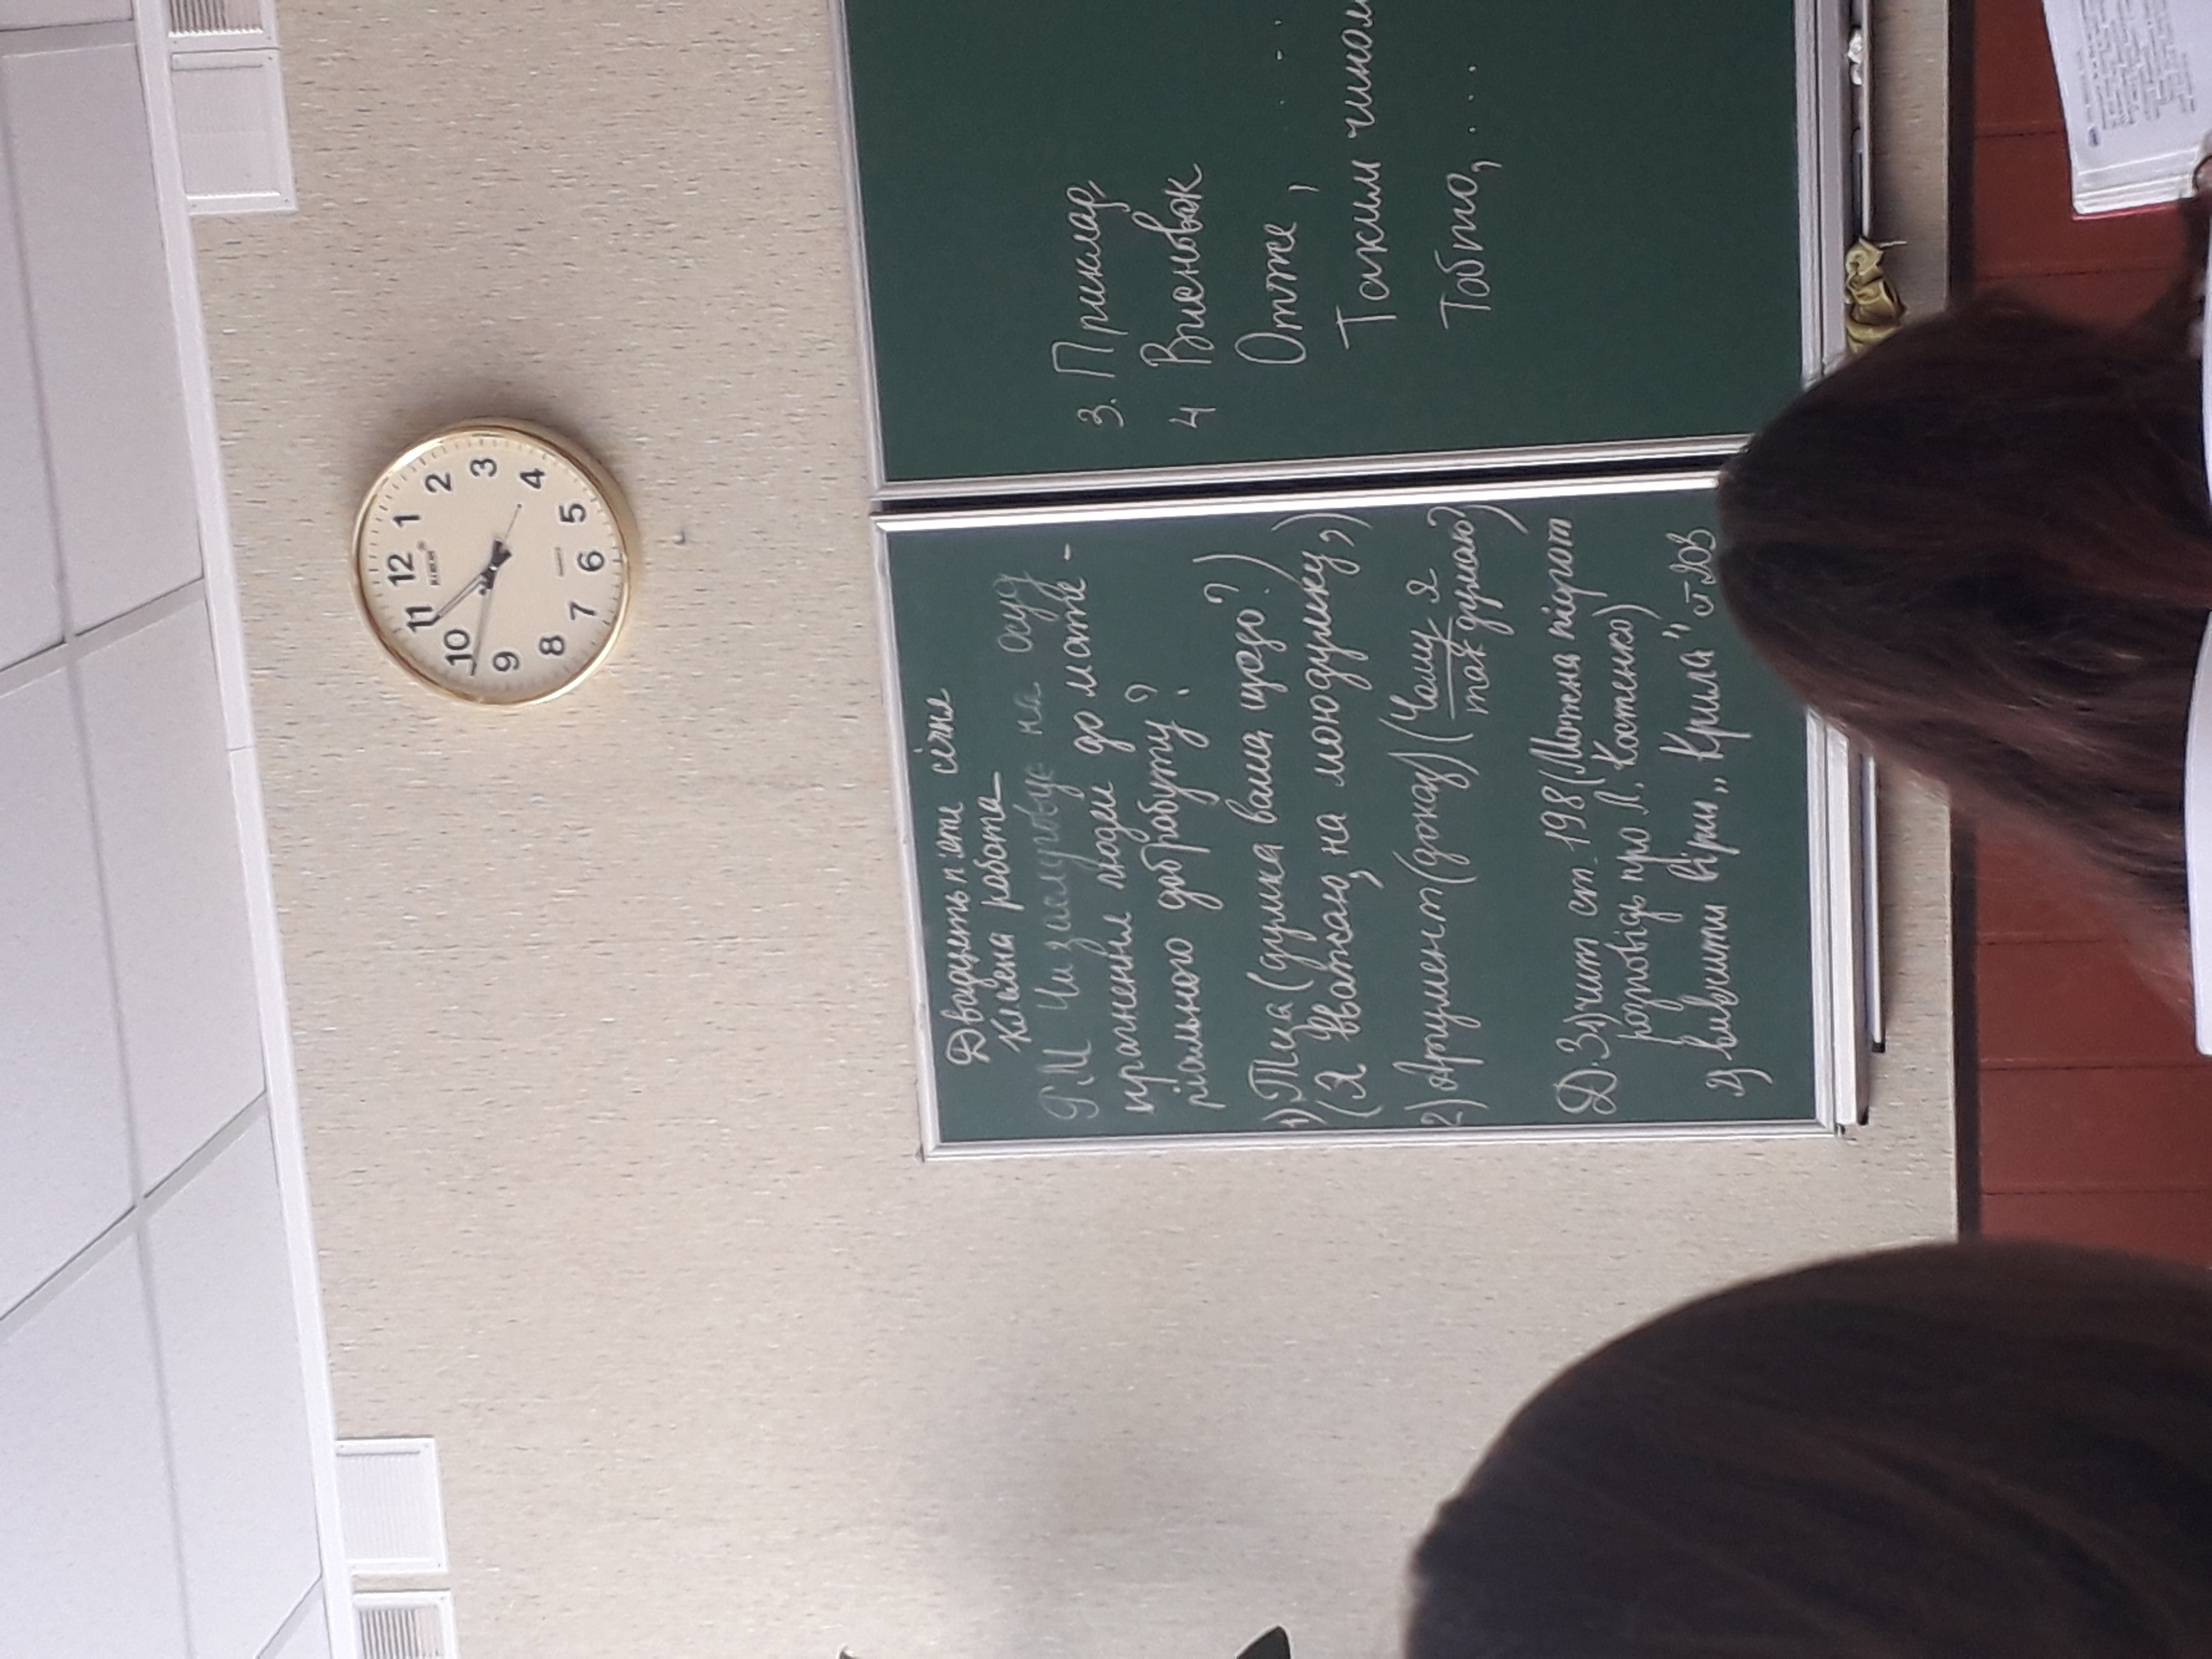 12
1
2
3
4
5
6
7
8
9
10
11
Двадцять п'яте січня
Класна робота
Р.М Чи заслуговує на осуд
прагнення людей до мате-
ріального добробуту?
1) Теза (думка ваша щодо?)
(Я вважаю, на мою думку,)
2) Аргумент (доказ) (Чому я
так думаю?)
Д.З) чит ст. 198 (Можна підгот
розповідь про Л. Костенко)
вивчити вірш „Крила" ст 203
3. Приклад
4 Висновок
Отже , ....
Таким чином
Тобто, ...